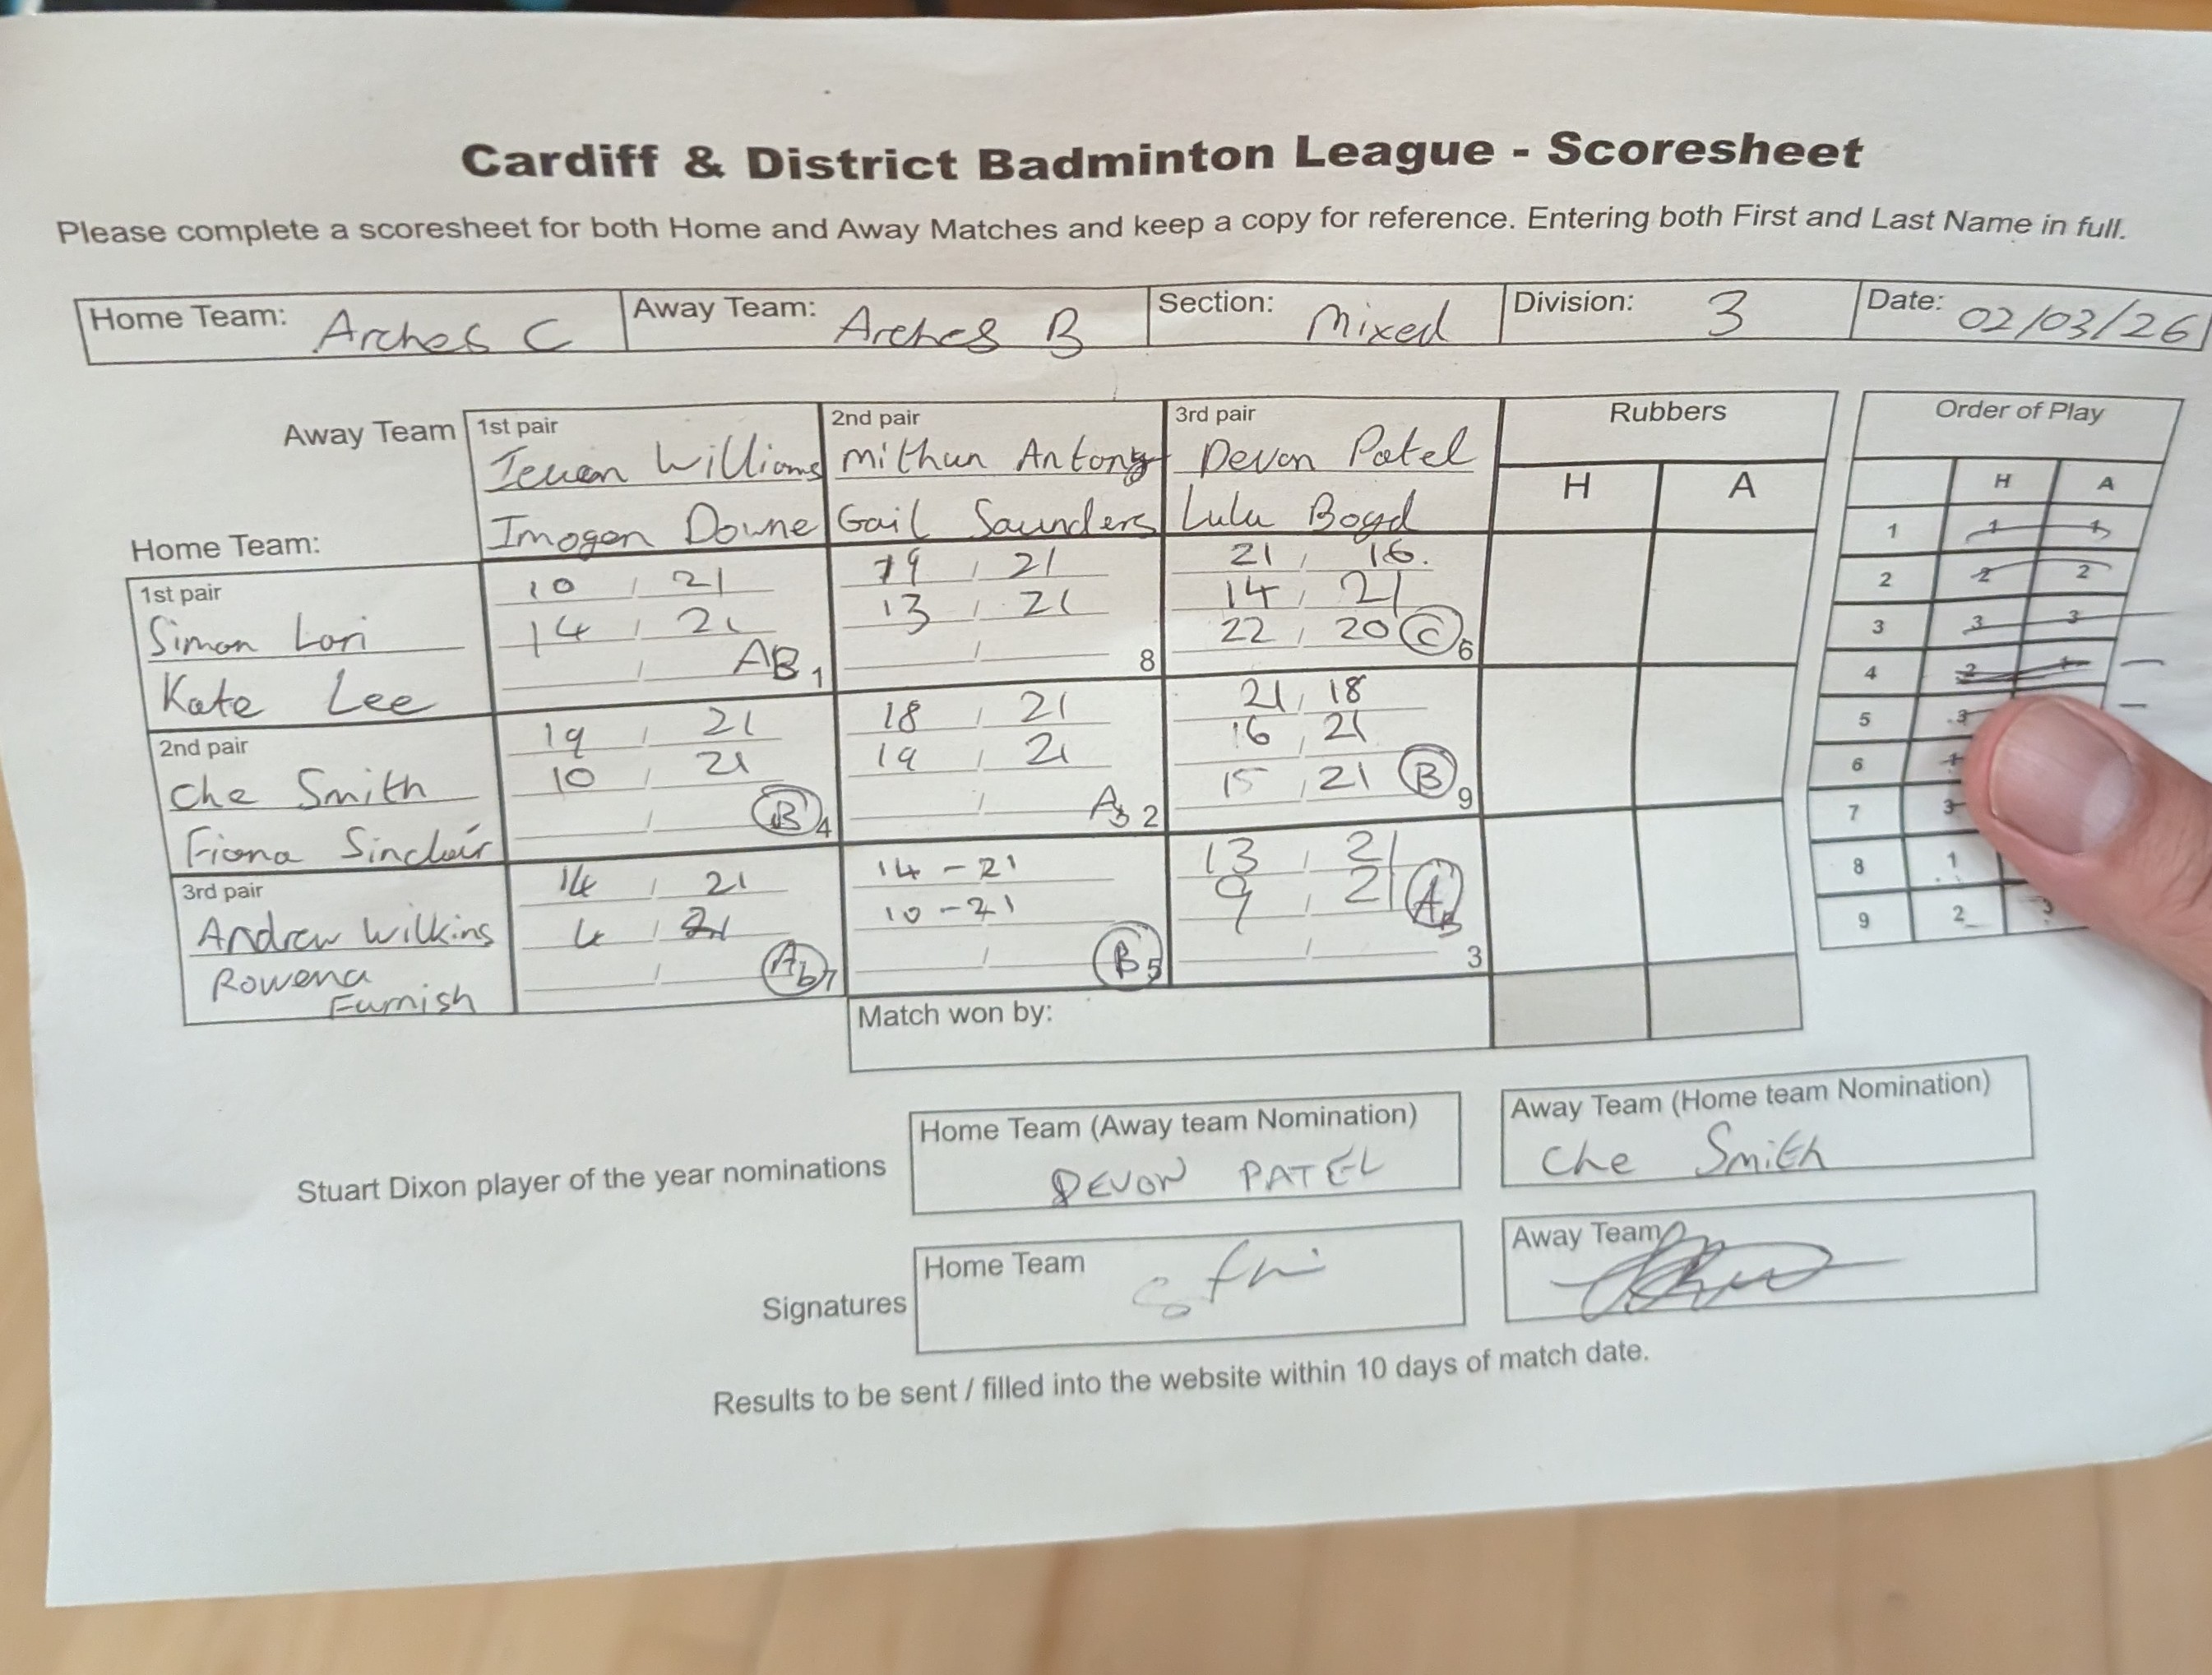 Cardiff & District Badminton League - Scoresheet
Please complete a scoresheet for both Home and Away Matches and keep a copy for reference. Entering both First and Last Name in full.
Home Team: Arches C Away Team: Arches B Section: Mixed Division: 3 Date: 02/03/26
Away Team 1st pair 2nd pair 3rd pair Rubbers Order of Play
Ieuan Williams Mithun Antony Devon Patel H A H A
Imogen Downe Gail Saunders Lulu Boyd
Home Team:
1st pair 10 , 21 19 , 21 21 , 16. 1 1 1
Simon Lori 14 , 21 13 , 21 14 , 21 2 2 2
Kate Lee / AB 1 / 8 22 , 20 C 6 3 3 3
2nd pair 19 / 21 18 / 21 21 , 18 4 2 1
Che Smith 10 / 21 19 / 21 16 , 21 5 3
Fiona Sinclair / B 4 / AB 2 15 , 21 B 9 6 1
3rd pair 14 / 21 14 - 21 13 / 21 7 3
Andrew Wilkins 4 / 21 10 - 21 9 / 21 AB 8 1
Rowena / Ab 7 / B 5 / 3 9 2 3
Furnish
Match won by:
Stuart Dixon player of the year nominations
Home Team (Away team Nomination) Away Team (Home team Nomination)
DEVON PATEL Che Smith
Signatures
Home Team Away Team
Results to be sent / filled into the website within 10 days of match date.